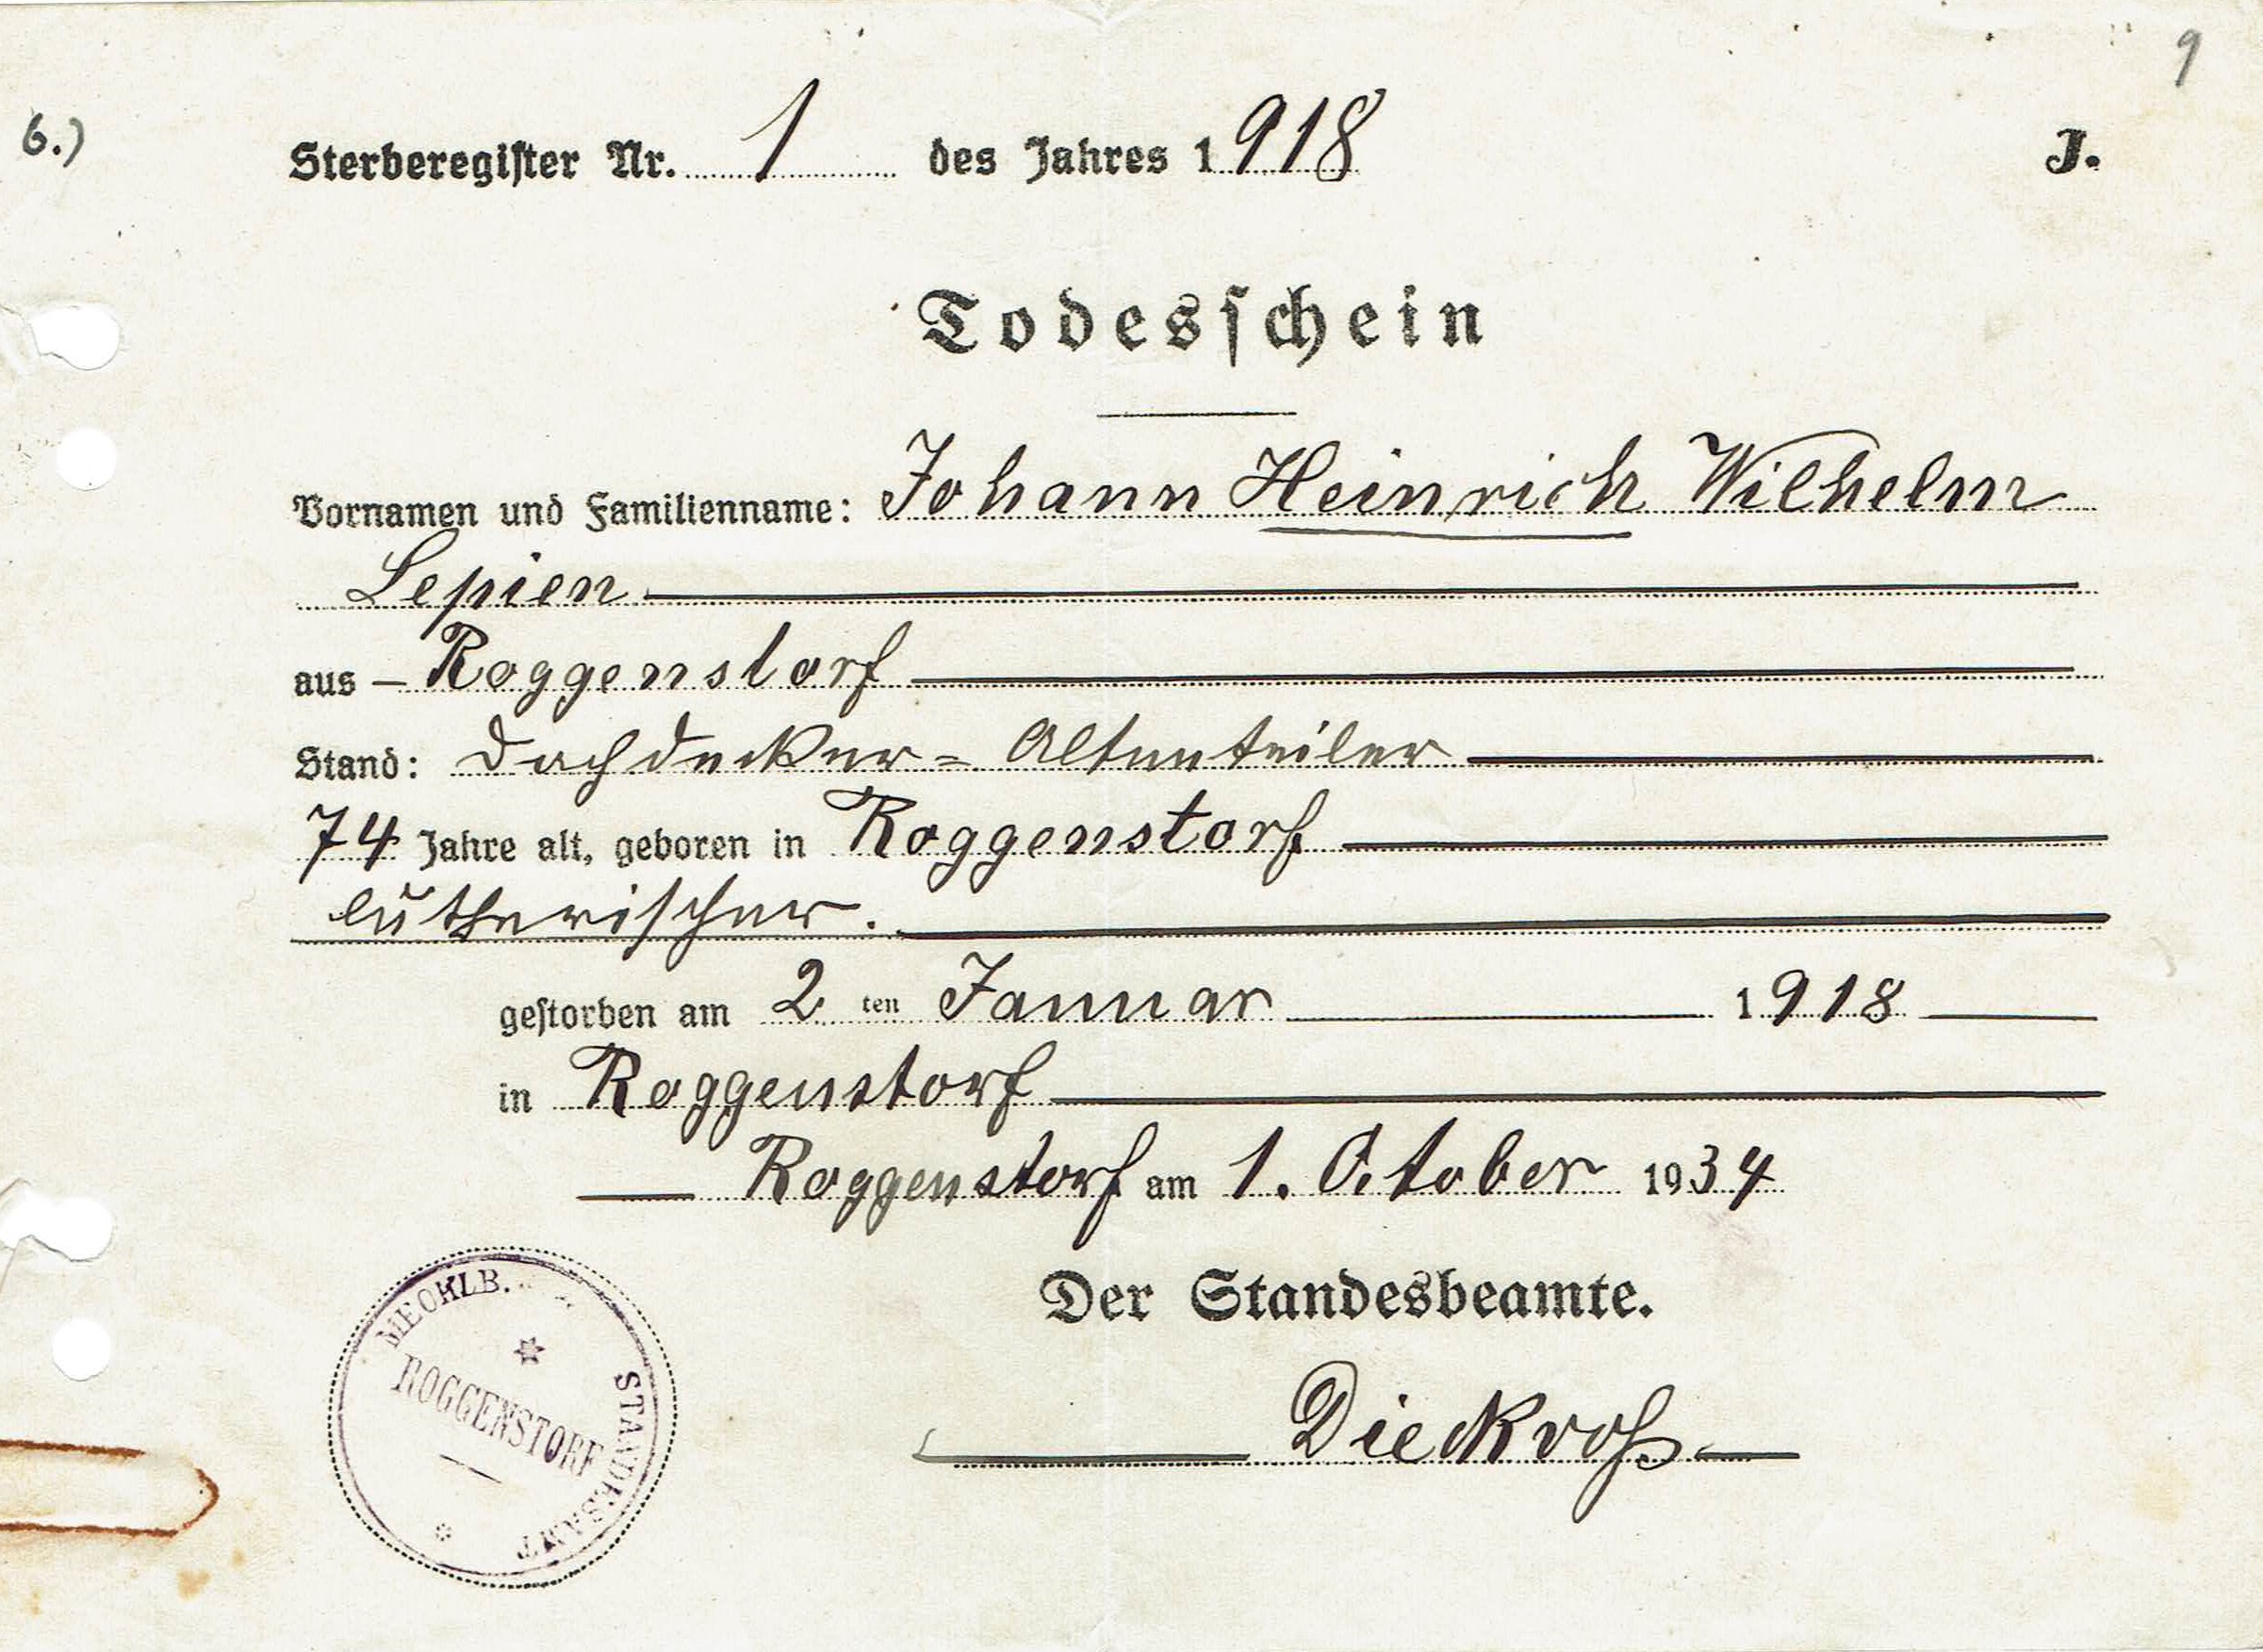 9
6.)
Sterberegister Nr. 1 des Jahres 1918
J.
Todesschein
Vornamen und Familienname: Johann Heinrich Wilhelm
Lepien
aus – Roggenstorf
Stand: Dachdecker = Altenteiler
74 Jahre alt, geboren in Roggenstorf
lutherischer.
gestorben am 2 ten Januar 1918
in Roggenstorf
Roggenstorf am 1. October 1934
Der Standesbeamte.
Dieckvoß
MECKLB.
STANDESAMT
ROGGENSTORF